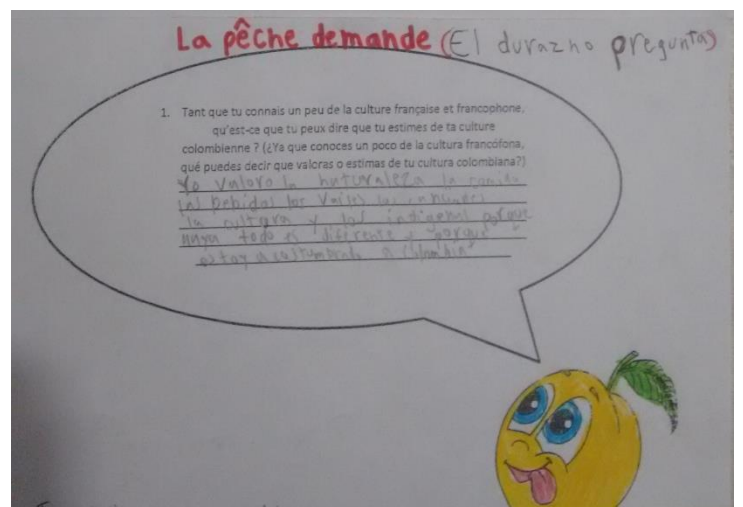 La pêche demande (El durazno pregunta)
1. Tant que tu connais un peu de la culture française et francophone,
qu'est-ce que tu peux dire que tu estimes de ta culture
colombienne ? (¿Ya que conoces un poco de la cultura francófona,
qué puedes decir que valoras o estimas de tu cultura colombiana?)
Yo valoro la naturaleza la comida
las bebidas los
la cultura y los indigenas porque
todo es diferente y porque
estoy acustumbrada a Colombia